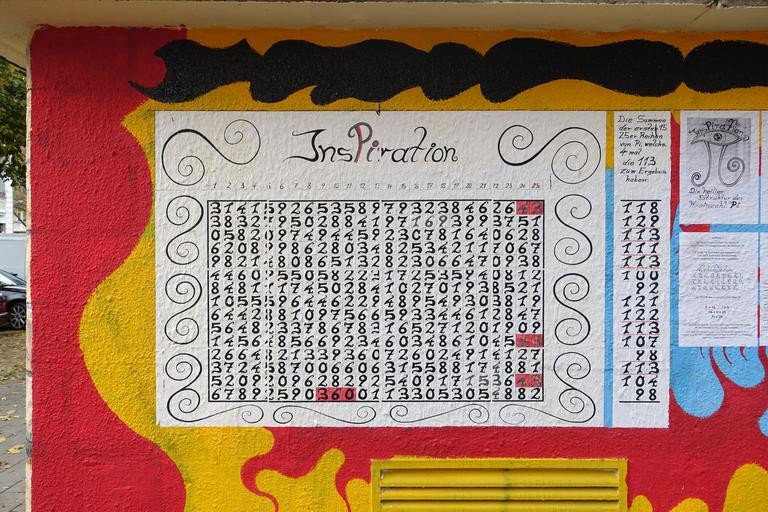 InsPiration
1 2 3 4 5 6 7 8 9 10 11 12 13 14 15 16 17 18 19 20 21 22 23 24 25
3141592653589793238462643
3832795028841971693993751
0582097494459230781640628
6208998628034825342117067
9821480865132823066470938
4460955058223172535940812
8481117450284102701938521
1055596446229489549303819
6442881097566593344612847
5648233786783165271201909
1456485669234603486104543
2664821339360726024914127
3724587006606315588174881
5209209628292540917153643
6789259036001133053054882
Die Summen
der ersten 15
25er Reihen
von Pi, welche
4 mal
die 113
zum Ergebnis
haben.
118
129
113
111
113
100
92
121
122
113
107
98
113
104
98
InsPiration
Die heilige
Struktur der
Kreiszahl Pi